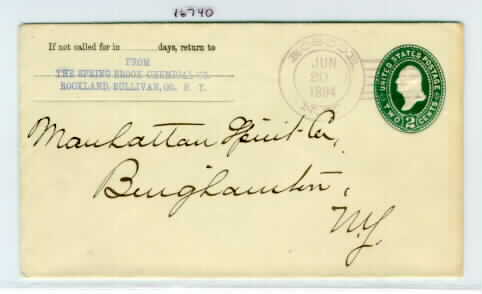 16740
If not called for in ____ days, return to
FROM
THE SPRING BROOK CHEMICAL CO.
ROCKLAND, SULLIVAN, CO. N. Y.
JUN
20
1894
UNITED STATES POSTAGE
TWO 2 CENTS
Manhattan Spirit Co,
Binghamton,
N.Y.